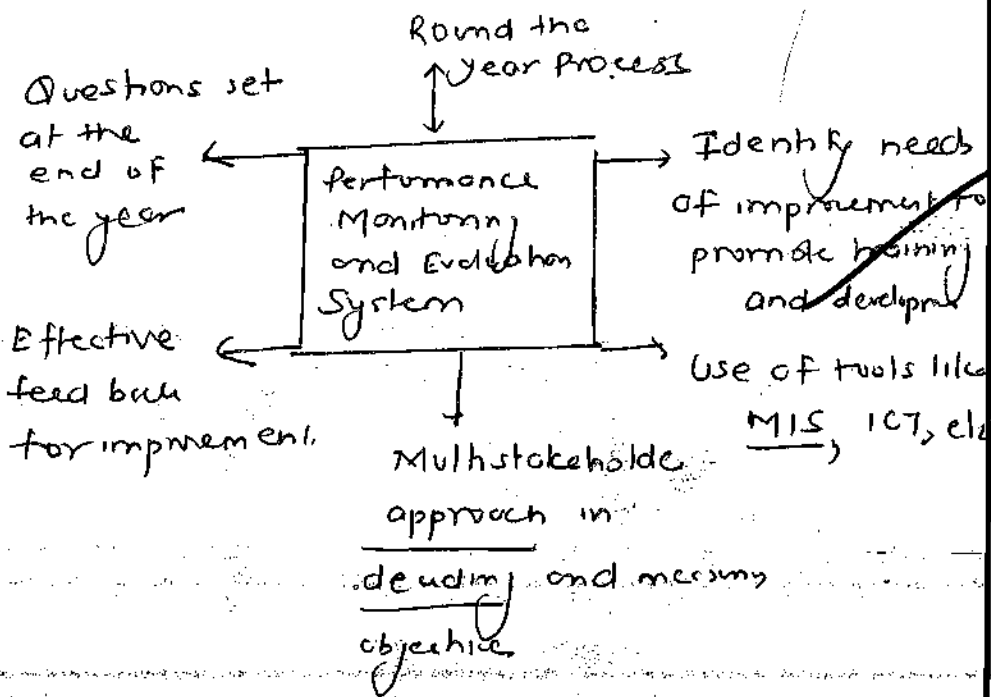 Round the
year process
Questions set
at the
end of
the year
Performance
Monitoring
and Evaluation
System
Identify needs
of improvement to
promote training
and developm
Effective
feed back
for improvement.
Use of tools like
MIS, ICT, etc
Multistakeholde
approach in
deciding and
objectives